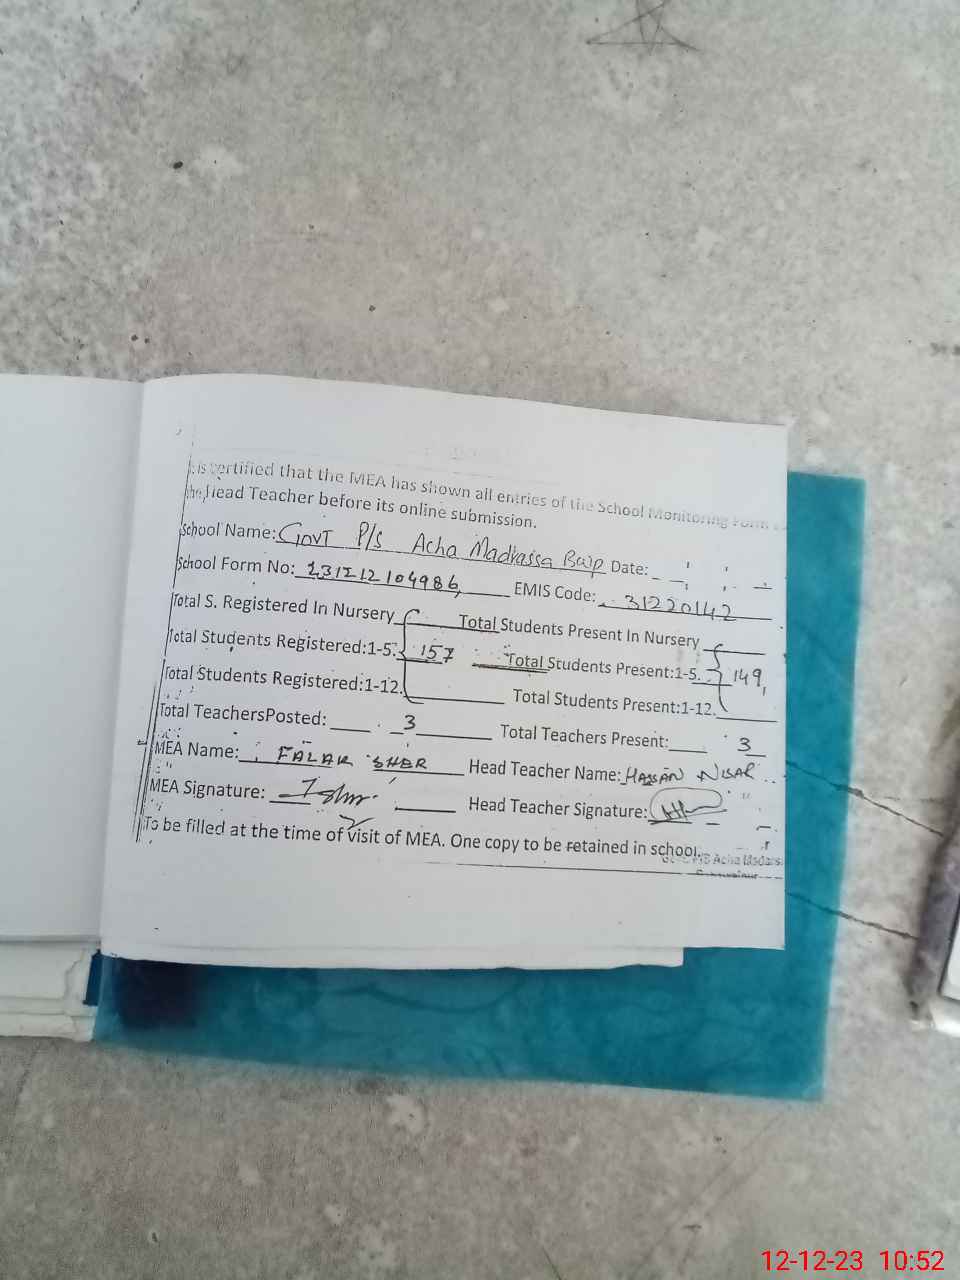 is certified that the MEA has shown all entries of the School Monitoring Form
the Head Teacher before its online submission.
School Name: Govt P/s Acha Madrassa Bwp Date:
School Form No: 231212104986, EMIS Code: 31220142
Total S. Registered In Nursery Total Students Present In Nursery
Total Students Registered:1-5. 157 Total Students Present:1-5. 149,
Total Students Registered:1-12. Total Students Present:1-12.
Total TeachersPosted: 3 Total Teachers Present: 3
MEA Name: FALAK SHER Head Teacher Name: HASSAN NISAR
MEA Signature: Head Teacher Signature:
To be filled at the time of visit of MEA. One copy to be retained in school.
P/S Acha Madars
12-12-23 10:52